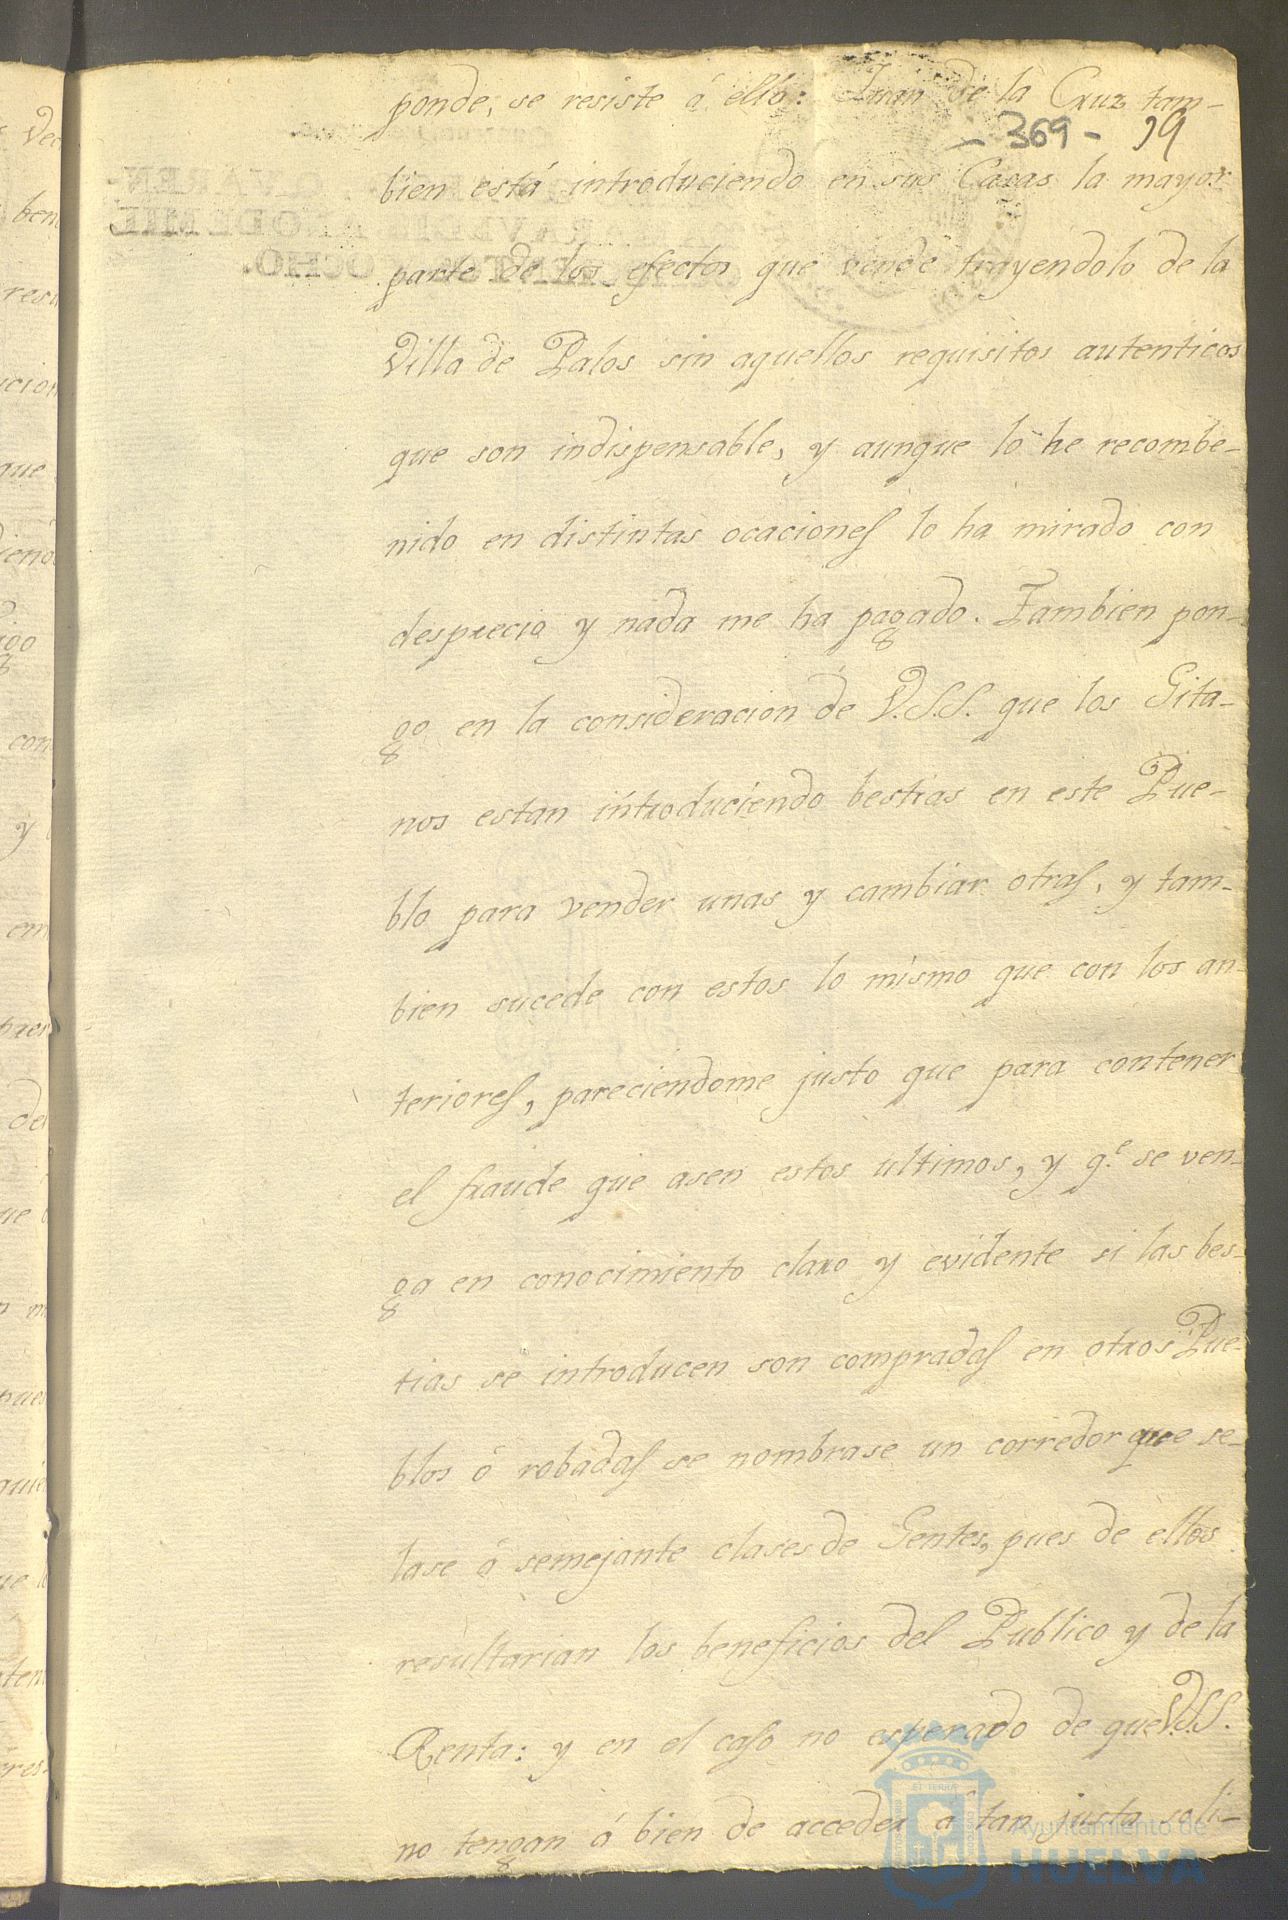 ponde, se resiste á ello: Juan de la Cruz tam-
- 369 - 19
bien está introduciendo en sus Casas la mayor
parte de los efectos que vende trayendolo de la
Villa de Palos sin aquellos requisitos autenticos
que son indispensable, y aunque lo he recombe-
nido en distintas ocaciones lo ha mirado con
desprecio y nada me ha pagado. Tambien pon-
go en la consideracion de V.S.S. que los Gita-
nos estan introduciendo bestias en este Pue-
blo para vender unas y cambiar otras, y tam-
bien sucede con estos lo mismo que con los an-
teriores, pareciendome justo que para contener
el fraude que asen estos ultimos, y q.e se ven-
ga en conocimiento claro y evidente si las bes-
tias se introducen son compradas en otros Pue-
blos ó robadas se nombrase un corredor que se-
lase á semejante clases de Gentes, pues de ellos
resultarian los beneficios del Publico y de la
Renta: y en el caso no esperado de que V.S.S.
no tengan á bien de acceder á tan justa soli-
Ayuntamiento de
HUELVA